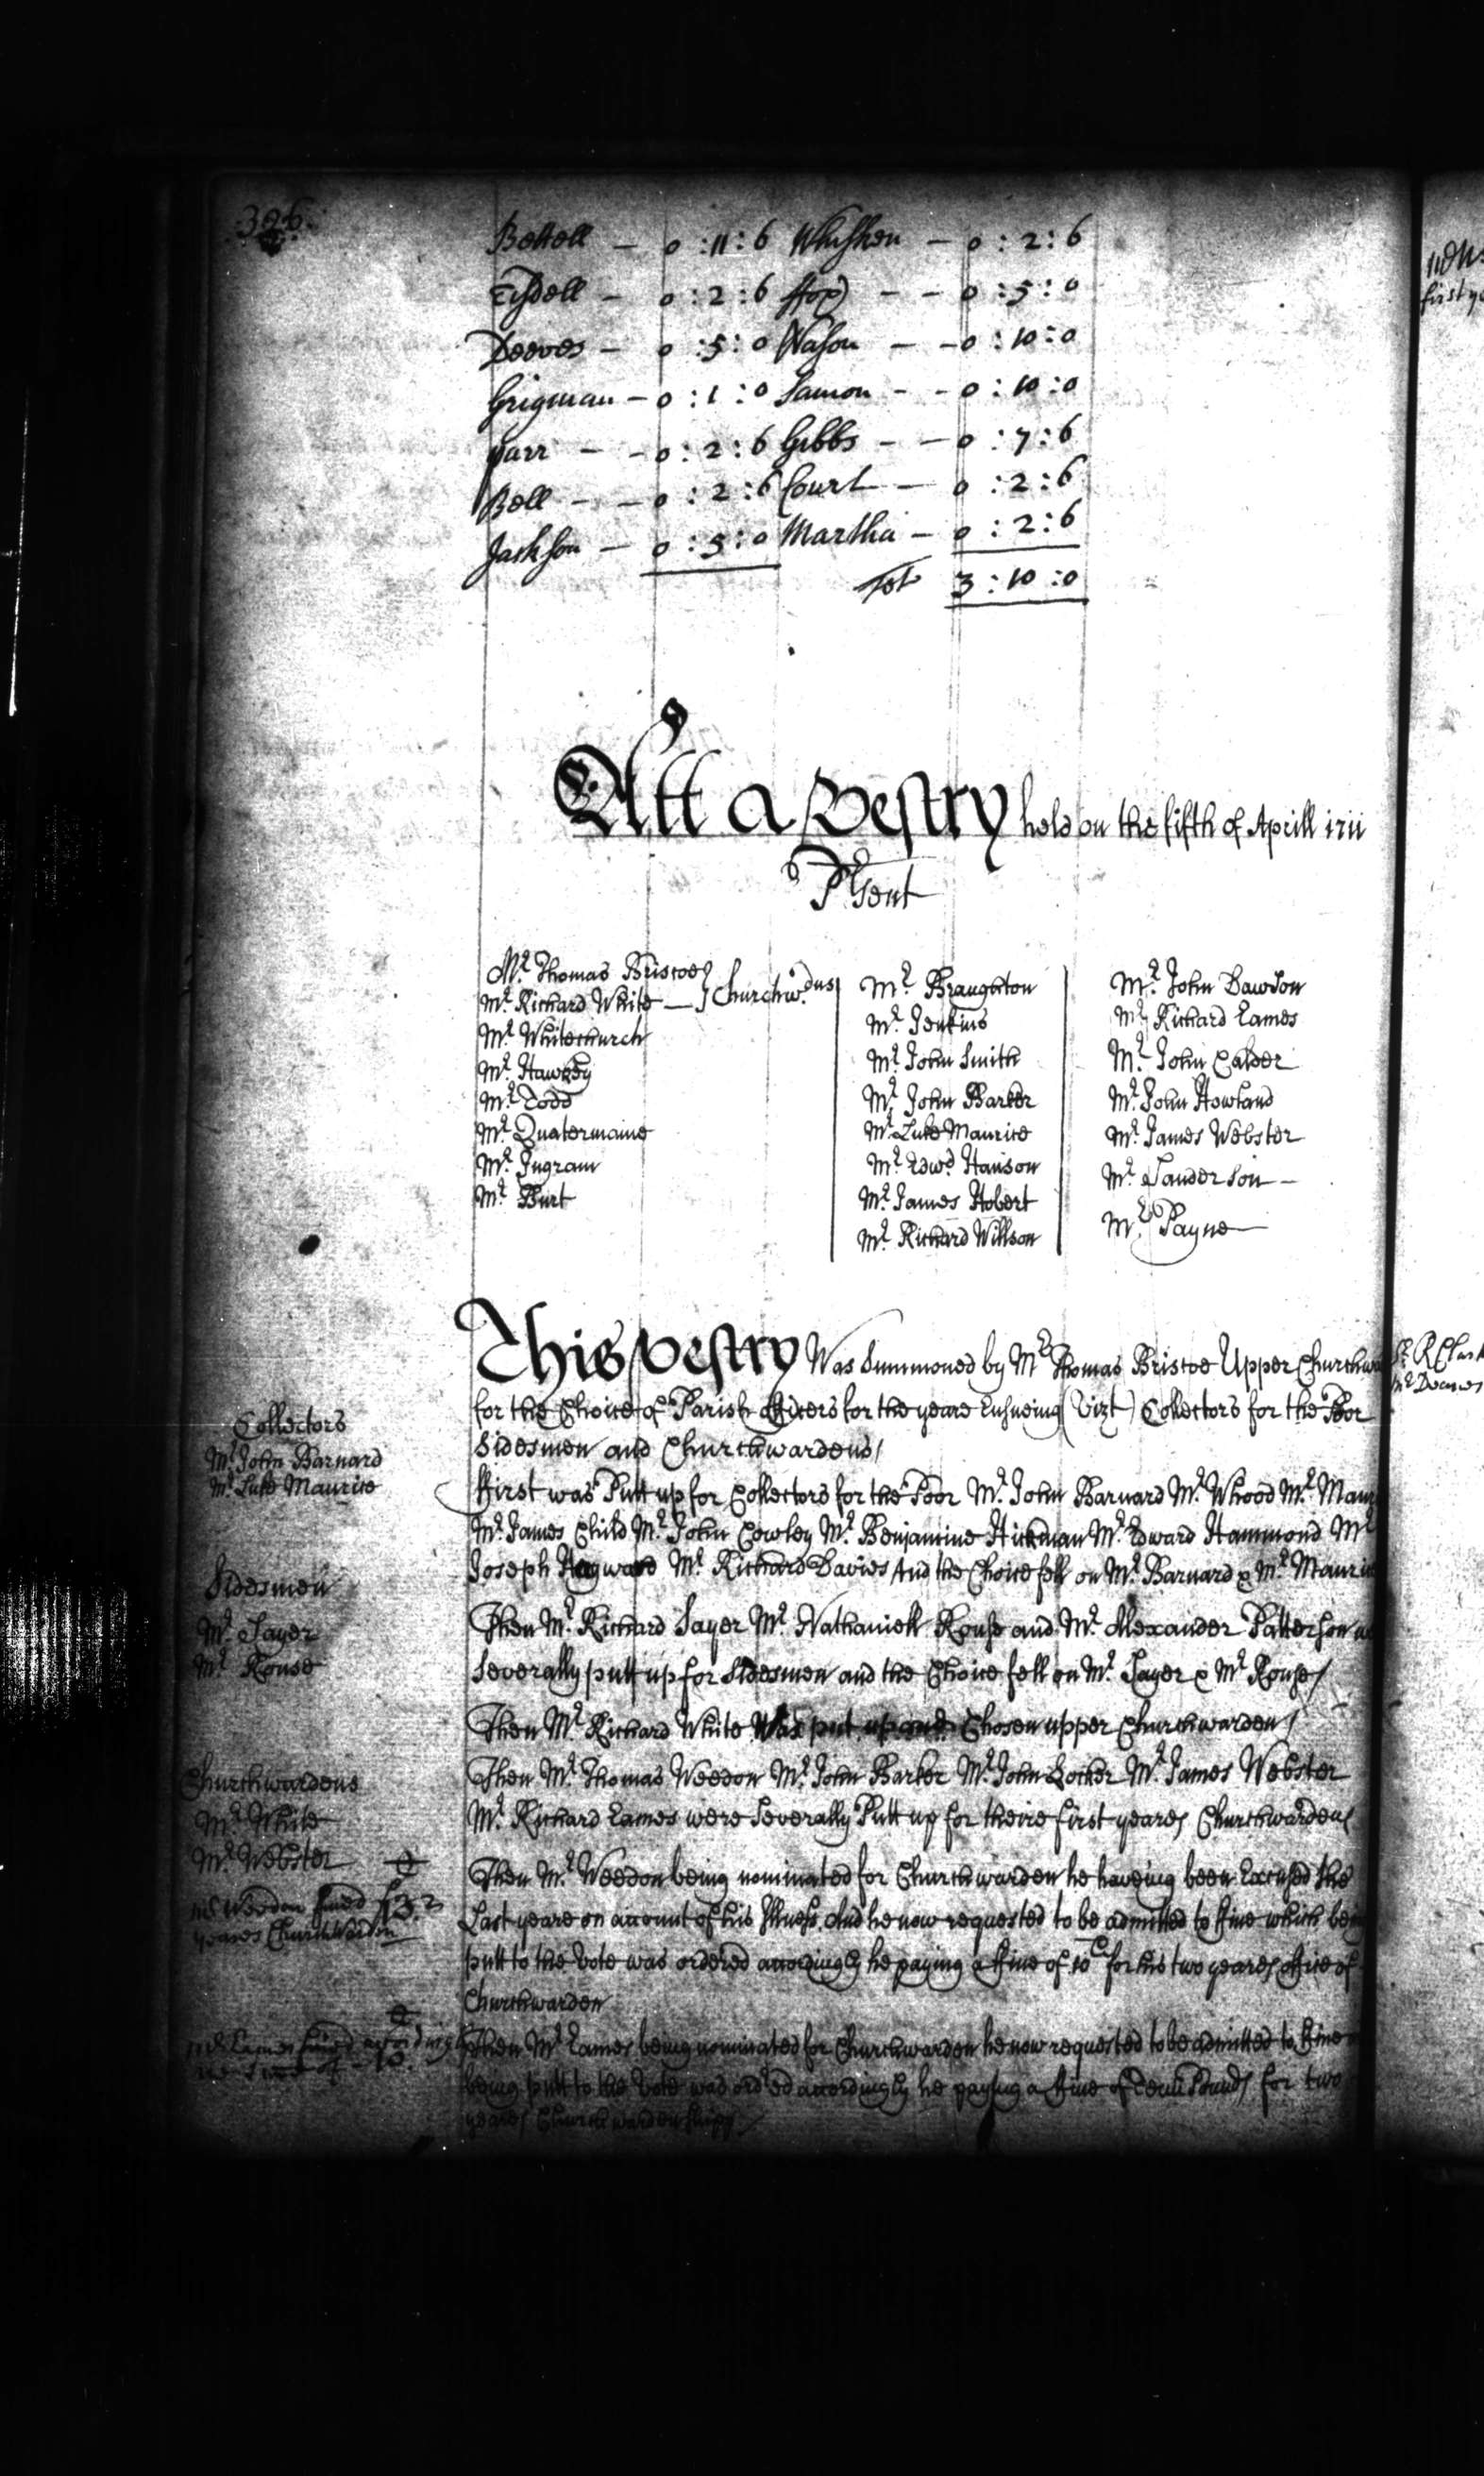 326
Bottoll — 0 : 11 : 6 Whishen — 0 : 2 : 6
Tisdell — 0 : 2 : 6 Hop — — 0 : 5 : 0
Deeves — 0 : 5 : 0 Wason — — 0 : 10 : 0
Grigman — 0 : 1 : 0 Samon — — 0 : 10 : 0
parr — — 0 : 2 : 6 Gibbs — — 0 : 7 : 6
Bell — — 0 : 2 : 6 Court — 0 : 2 : 6
Jackson — 0 : 5 : 0 Martha — 0 : 2 : 6
Tot 3 : 10 : 0
Att a Vestry held on the fifth of Aprill 1711
P'sent
Mr. Thomas Briscoe
Mr. Richard White — Churchwdns
Mr. Whitechurch
Mr. Hawkey
Mr. Todd
Mr. Quatermaine
Mr. Ingram
Mr. Burt
Mr. Braughton
Mr. Jenkins
Mr. John Smith
Mr. John Barker
Mr. Luke Maurice
Mr. Edwd. Hanson
Mr. James Hobert
Mr. Richard Willson
Mr. John Dawson
Mr. Richard Eames
Mr. John Calder
Mr. John Howland
Mr. James Webster
Mr. Sanderson —
Mr. Payne
This Vestry Was Summoned by Mr. Thomas Briscoe Upper Churchwa
for the Choice of Parish officers for the yeare Ensueing (Vizt) Collectors for the Poor
Sidesmen and Churchwardens/
Collectors
Mr. John Barnard
Mr. Luke Maurice
ffirst was Putt up for Collectors for the Poor Mr. John Barnard Mr. Whood Mr. Maur
Mr. James Child Mr. John Cowley Mr. Benjamine Hickman Mr. Edward Hammond Mr.
Joseph Hayward Mr. Richard Davies And the Choice fell on Mr. Barnard & Mr. Mauric
Sidesmen
Mr. Sayer
Mr. Rouse
Then Mr. Richard Sayer Mr. Nathaniell Rouse and Mr. Alexander Patterson
Severally putt up for Sidesmen and the Choice fell on Mr. Sayer & Mr. Rouse/
Then Mr. Richard White Was put up and Chosen upper Churchwarden/
Churchwardens
Mr. White
Mr. Webster
Then Mr. Thomas Weedon Mr. John Barker Mr. John Locker Mr. James Webster
Mr. Richard Eames were Severally Putt up for theire first yeares Churchwardens
Mr Weedon fined
yeares Churchwarden
Then Mr. Weedon being nominated for Churchwarden he haveing been Excused the
Last yeare on account of his Illness And he now requested to be admitted to ffine which be
putt to the Vote was ordered accordingly he paying a ffine of 10 for his two yeares office of
Churchwarden
Mr Eames fined
Then Mr. Eames being nominated for Churchwarden he now requested to be admitted to ffine
being putt to the Vote was ordred accordingly he paying a ffine of Tenn Pounds for two
yeares Churchwardenshipp